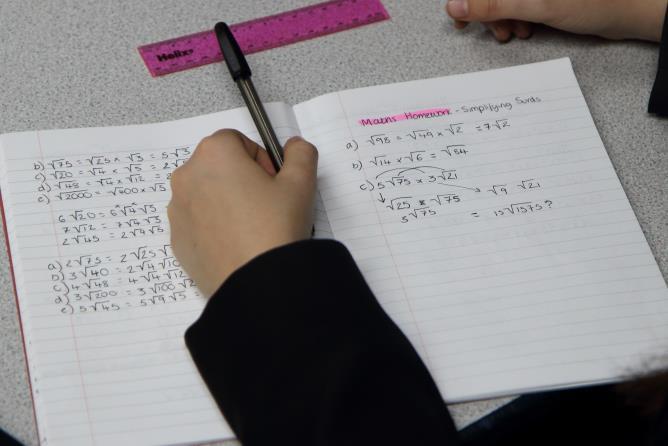 Helix
b) √75 = √25 × √3 = 5√3
c) √20 = √4 × √5 = 2√
d) √48 = √4 × √12 =
e) √2000 = √400 × √5
6√20 = 6√4√5
7√12 = 7√4√3
2√45 = 2√9√5
a) 2√75 = 2√25√
b) 3√40 = 2√4√10
c) 4√48 = 4√4√12
d) 3√200 = 3√100√2
e) 5√45 = 5√9√5 =
Maths Homework - Simplifying Surds
a) √98 = √49 × √2 = 7√2
b) √14 × √6 = √84
c) 5√75 × 3√21
√9 √21
√25 × √75
5√75 = 15√1575?